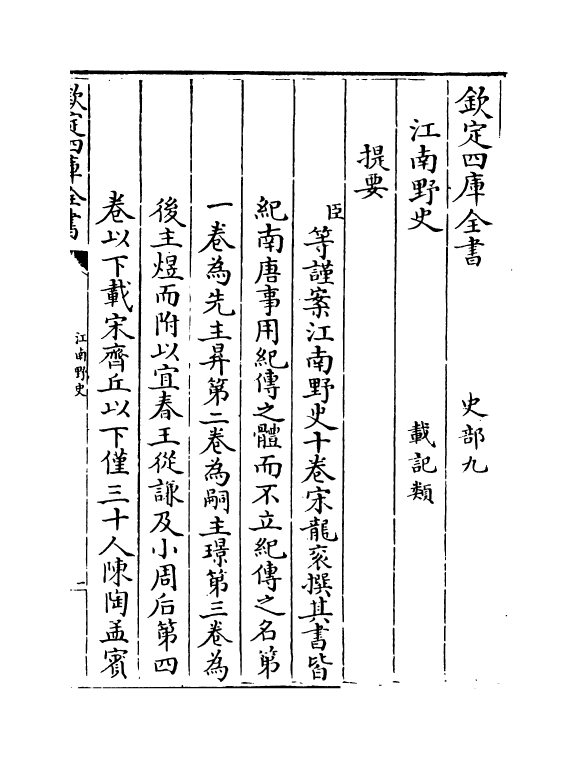 欽定四庫全書　史部九
江南野史　載記類
提要
臣等謹案江南野史十卷宋龍衮撰其書皆
紀南唐事用紀傳之體而不立紀傳之名第
一卷為先主昇第二卷為嗣主璟第三卷為
後主煜而附以宜春王從謙及小周后第四
卷以下載宋齊丘以下僅三十人陳陶孟賓
欽定四庫全書
江南野史